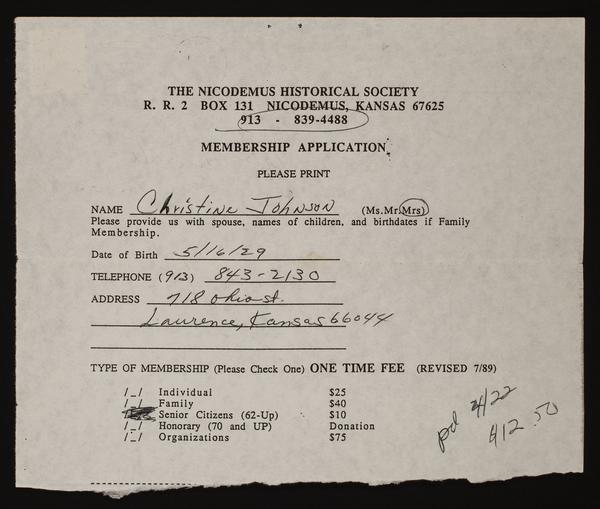 THE NICODEMUS HISTORICAL SOCIETY
R. R. 2 BOX 131 NICODEMUS, KANSAS 67625
913 - 839-4488
MEMBERSHIP APPLICATION
PLEASE PRINT
NAME Christine Johnson (Ms.Mr.Mrs)
Please provide us with spouse, names of children, and birthdates if Family
Membership.
Date of Birth 5/16/29
TELEPHONE (913) 843-2130
ADDRESS 718 Ohio st.
Lawrence, Kansas 66044
TYPE OF MEMBERSHIP (Please Check One) ONE TIME FEE (REVISED 7/89)
/_/ Individual $25
/_/ Family $40
Senior Citizens (62-Up) $10
/_/ Honorary (70 and UP) Donation
/_/ Organizations $75
pd 4/22
$12.50